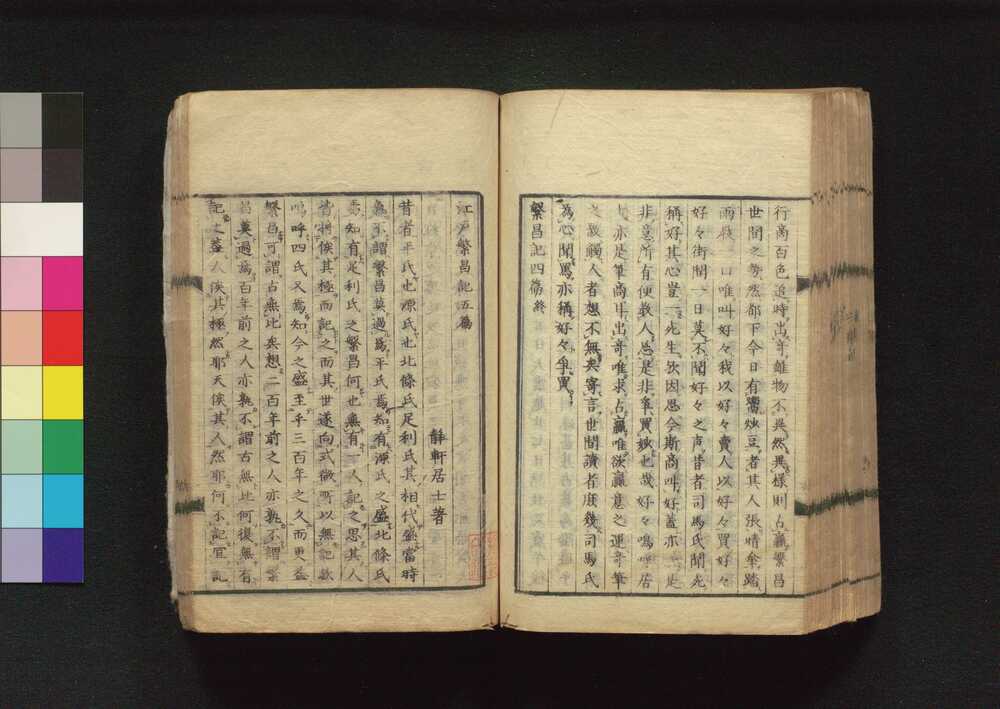 行商百色近時出奇離物不異然異樣則占贏繁昌
世間之勢然都下今日有鬻炒豆者其人張晴傘踏
雨屐口唯叫好々我以好々賣人以好々買好々
好々街閙一日莫不聞好々之声昔者司馬氏聞死
稱好其心豈一死生欤因思今斯商叫好蓋亦一是
非意所有使教人忘是非争買妙也哉好々嗚呼居
士亦是筆商耳出奇唯求占贏唯欲贏意之運奇筆
之散觸人者想不無矣寄言世間讀者庶幾司馬氏
為心聞罵亦稱好々争買
繁昌記四篇終
江戸繁昌記五篇
靜軒居士著
昔者平氏也源氏也北條氏足利氏其相代盛當時
無不謂繁昌莫過焉平氏焉知有源氏之盛北條氏
焉知有足利氏之繁昌何也無有一人記之思其人
皆將俟其極而記之而其世遂向式微所以無記歟
嗚呼四氏又焉知今之盛至乎三百年之久而更益
繁昌可謂古無比矣想二百年前之人亦孰不謂繁
昌莫過焉百年前之人亦孰不謂古無比何復無有
記之蓋人俟其極然耶天俟其人然耶何不記宜記